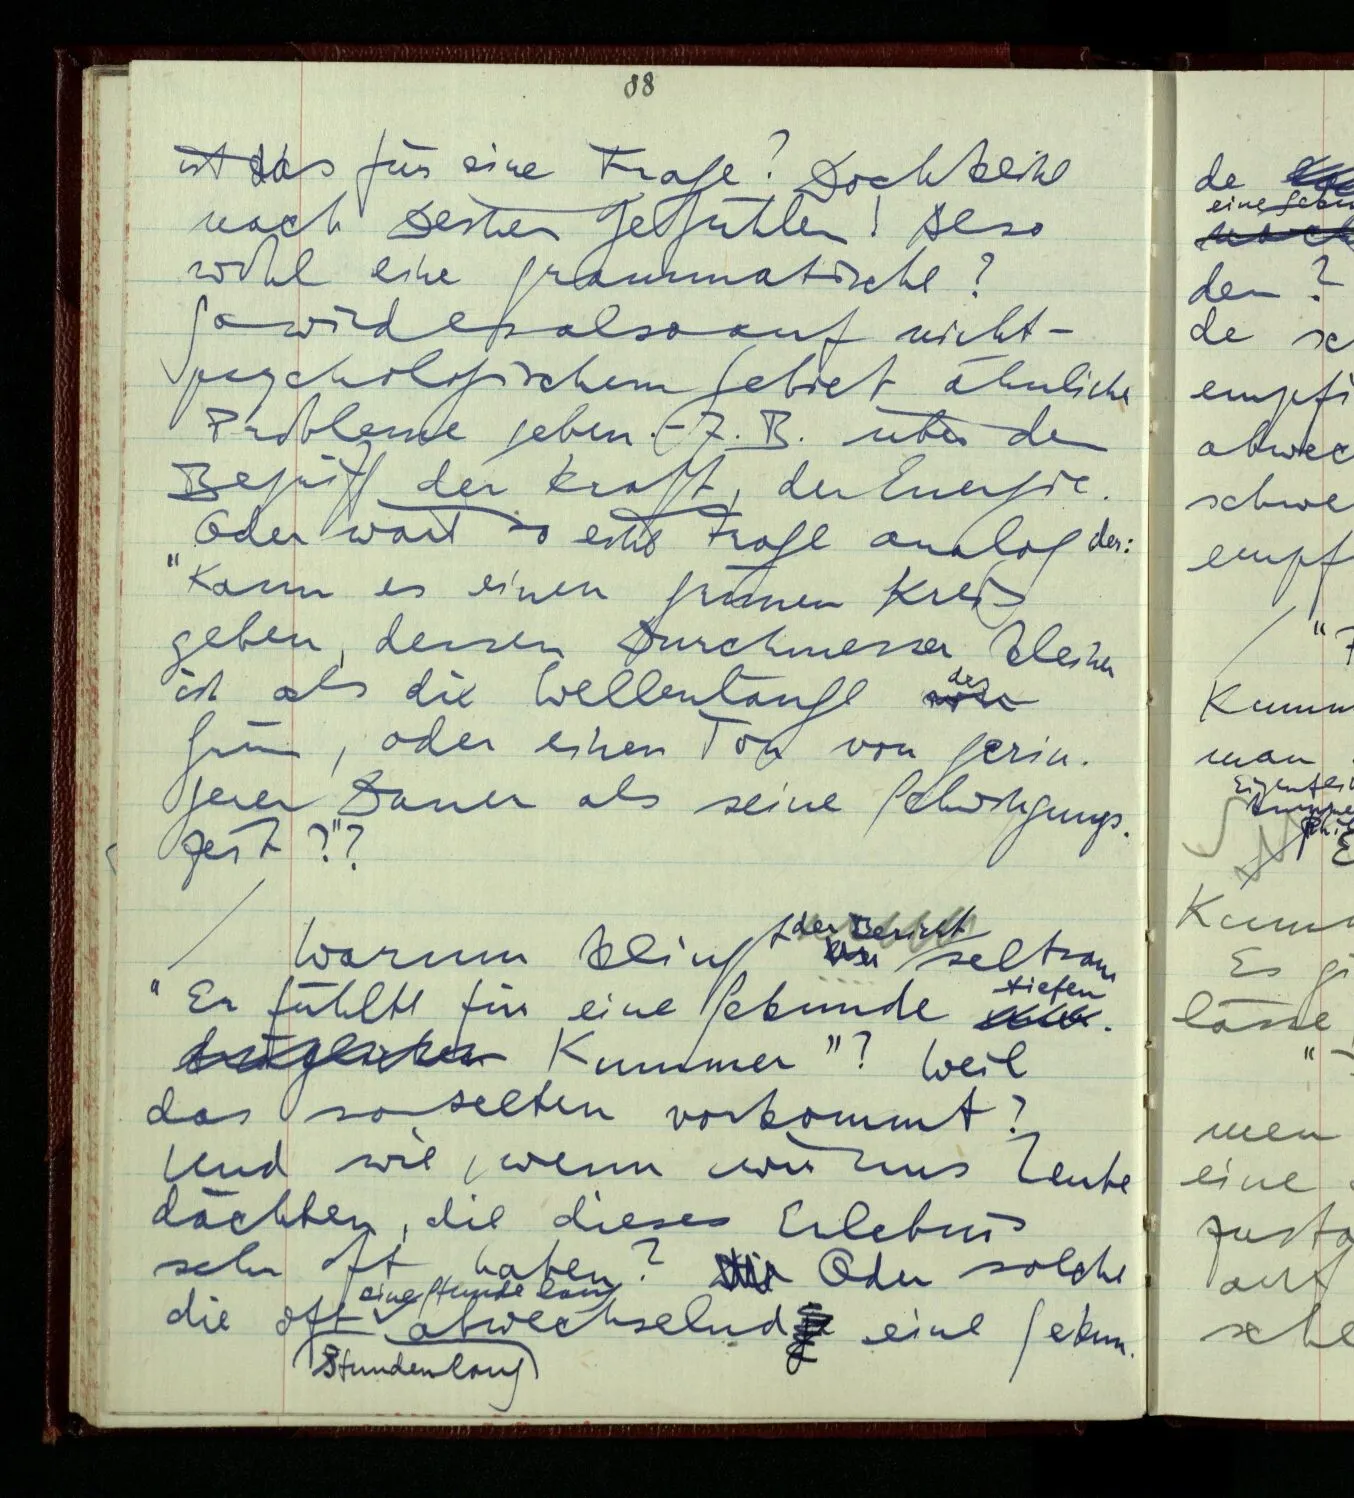 88
ist das für eine Frage? Doch keine
nach Deinen Gefühlen! Also
wohl eine grammatische?
So wird es also auf nicht-
psychologischem Gebiet ähnliche
Probleme geben. – Z. B. über den
Begriff der Kraft, der Energie.
Oder wäre so eine Frage analog der:
"Kann es einen grünen Kreis
geben, dessen Durchmesser kleiner
des
ist als die Wellenlänge von
Grün, oder einen Ton von gerin-
gerer Dauer als seine Schwingungs-
zeit?"?
der Bericht
Warum klingt seltsam
tiefen
"Er fühlte für eine Sekunde
Kummer"? Weil
das so selten vorkommt?
Und wie, wenn wir uns Leute
dächten, die dieses Erlebnis
sehr oft haben? Oder solche
eine Stunde lang
die oft abwechselnd eine Sekun-
Stundenlang
de
den?
de
empfi
abwec
schwe
empf
"
Kumm
man
Kumm
Es gi
lasse
"
men
eine
zusta
auf
sche